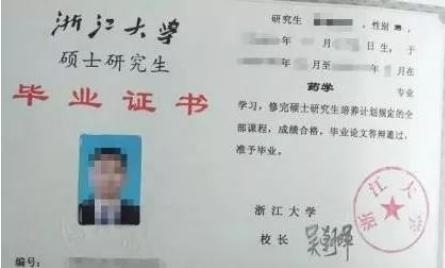 浙江大学
硕士研究生
毕业证书
编号:
研究生 ,性别男,
年 月 日生,于
年 月至 年 月在
药学 专业
学习,修完硕士研究生培养计划规定的全
部课程,成绩合格,毕业论文答辩通过,
准予毕业。
浙江大学
校长
浙江大